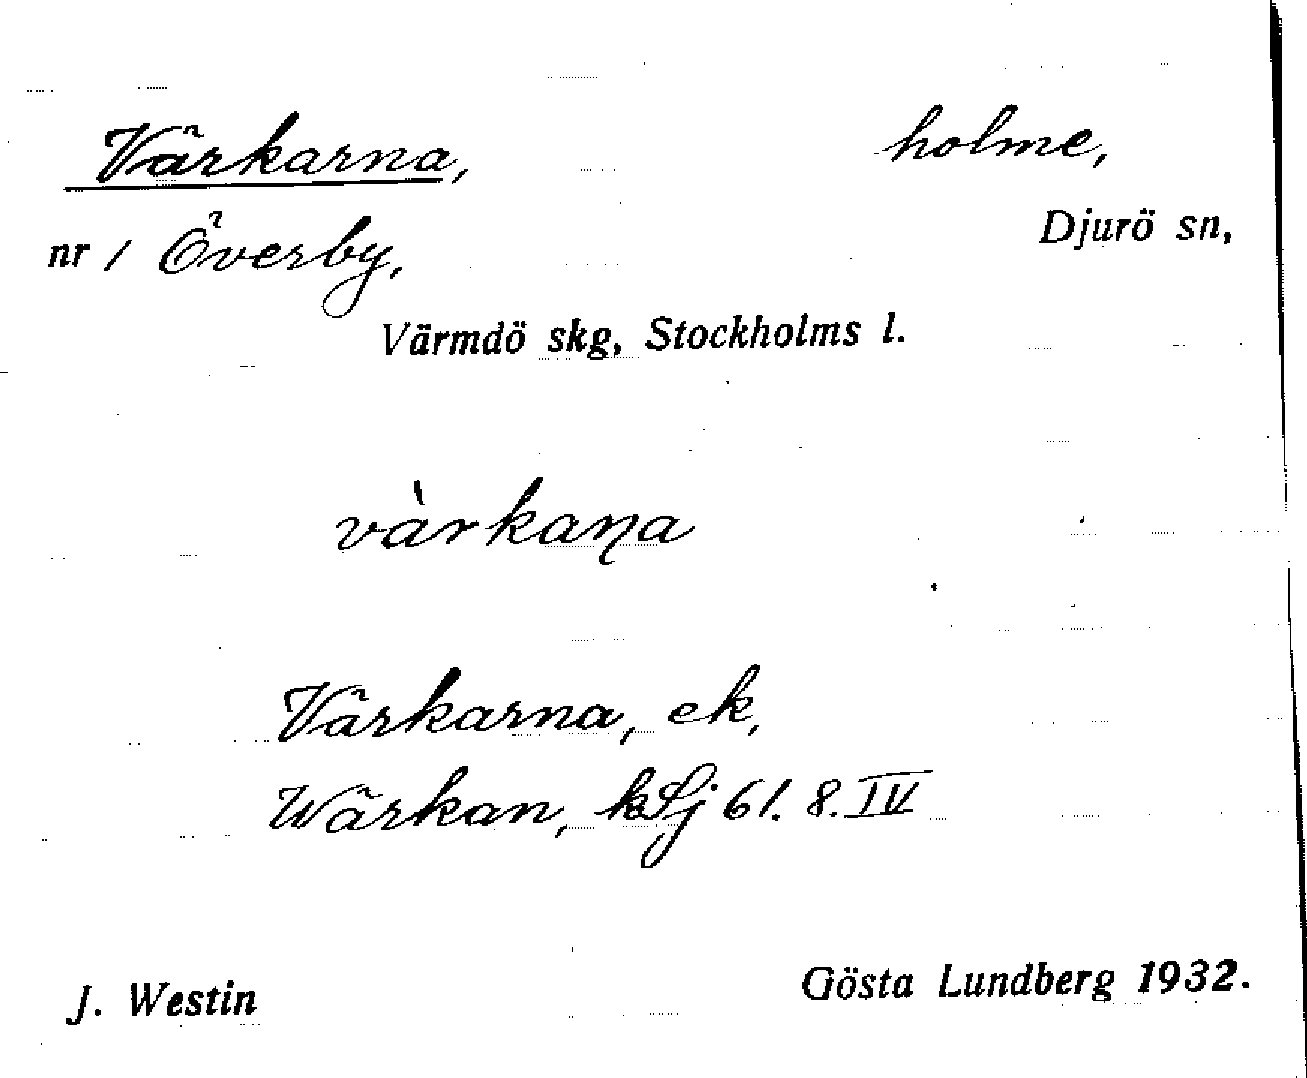 Värkarna, holme,
nr 1 Överby, Djurö sn,
Värmdö skg, Stockholms l.
vàrkaṇa
Värkarna, ek,
Wärkan, kSj 61. 8. IV
J. Westin Gösta Lundberg 1932.